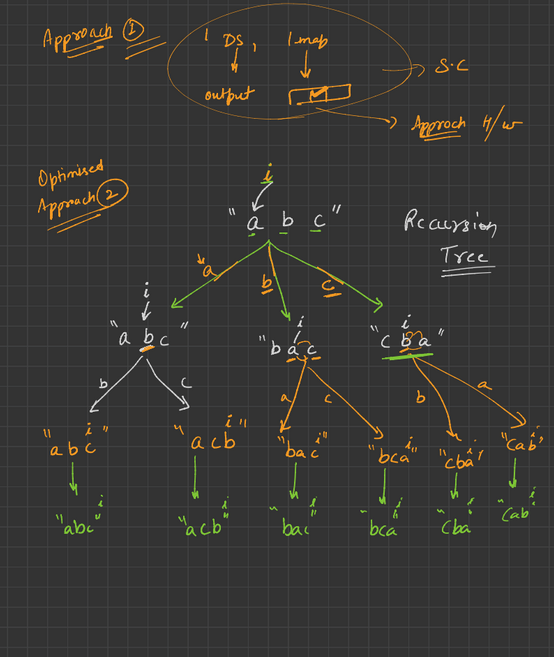 Approach 1
1 DS, 1 map
output
S.C
Approch H/w
Optimised
Approach 2
i
"a b c"
Recursion
Tree
a b c
i
"a b c"
i
"b a c"
i
"c b a"
b c
a c
b a
"abc" i
"acb" i
"bac" i
"bca" i
"cba" i
"cab" i
"abc" i
"acb" i
"bac" i
"bca" i
"cba" i
"cab" i